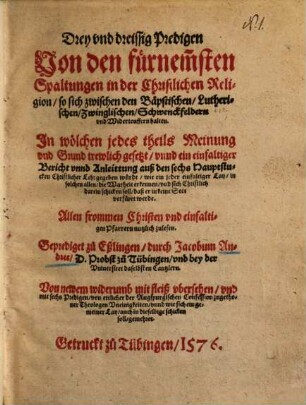 N.1.
Drey vnd dreissig Predigen
Von den fürnem̃sten
Spaltungen in der Christlichen Reli-
gion/ so sich zwischen den Bäpstischen/ Lutheri-
schen/ Zwinglischen/ Schwenckfeldern
vnd Widerteuffern halten.
In wölchen jedes theils Meinung
vnd Grund trewlich gesetzt/ vnnd ein einfältiger
Bericht vnnd Anleittung auß den sechs Hauptstu-
cken Christlicher Lehr gegeben würdt/ wie ein jeder einfältiger Lay/ in
solchen allen/ die Warheit erkennen/ vnd sich Christlich
darein schicken soll/ daß er in keine Sect
verfüret werde.
Allen frommen Christen vnd einfälti-
gen Pfarrern nutzlich zulesen.
Geprediget zů Eßlingen/ durch Jacobum An-
dree/ D. Probst zů Tübingen/ vnd bey der
Vniuersitet daselbsten Cantzlern.
Von newem widerumb mit fleiß vbersehen/ vnd
mit sechs Predigen/ von etlicher der Augspurgischen Confession zugetho-
ner Theologen Vneinigkeiten/ vnnd wie sich ein ge-
meiner Lay/ auch in dieselbige schicken
soll/ gemehret.
Getruckt zů Tübingen/ 1576.